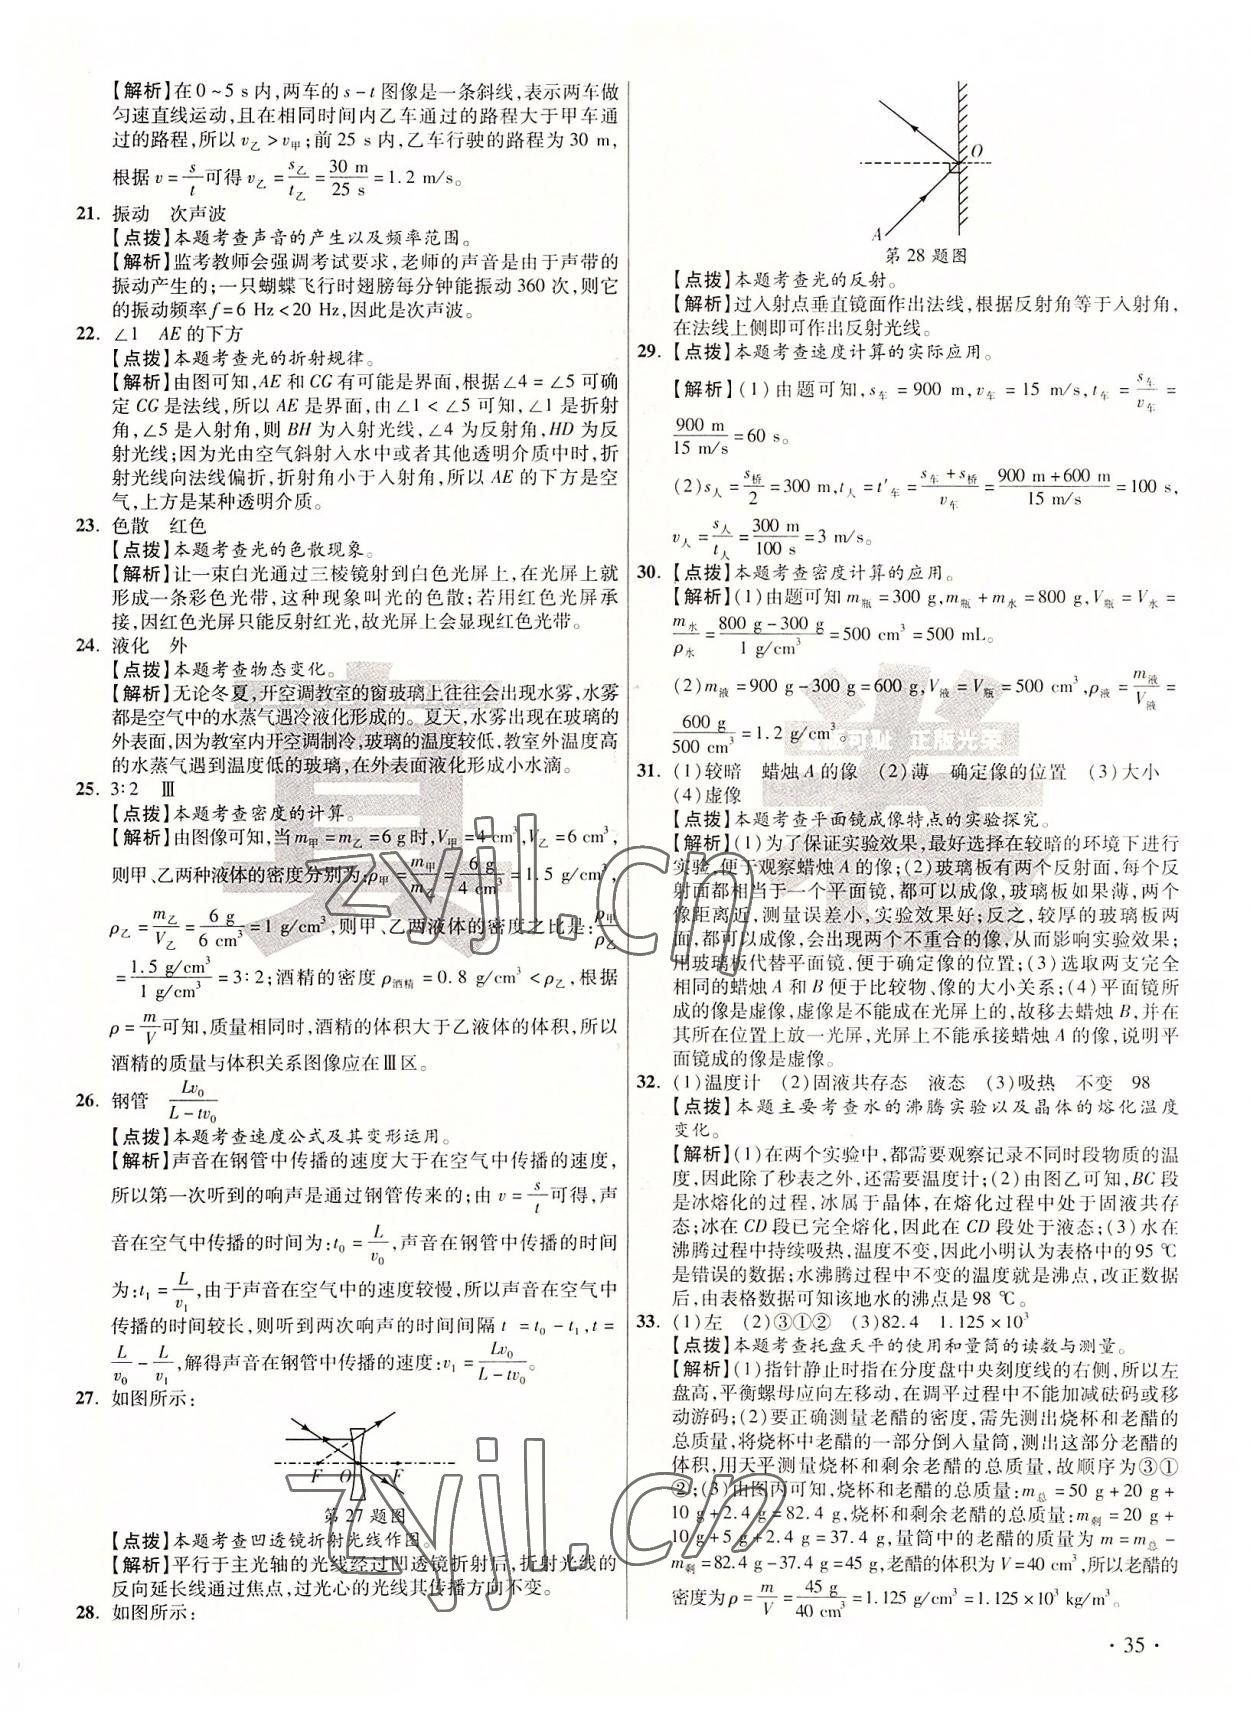 【解析】在0~5 s内,两车的s-t图像是一条斜线,表示两车做
匀速直线运动,且在相同时间内乙车通过的路程大于甲车通
过的路程,所以v乙>v甲;前25 s内,乙车行驶的路程为30 m,
根据v=s/t可得v乙=s乙/t乙=30 m/25 s=1.2 m/s。
21. 振动 次声波
【点拨】本题考查声音的产生以及频率范围。
【解析】监考教师会强调考试要求,老师的声音是由于声带的
振动产生的;一只蝴蝶飞行时翅膀每分钟能振动360次,则它
的振动频率f=6 Hz<20 Hz,因此是次声波。
22. ∠1 AE的下方
【点拨】本题考查光的折射规律。
【解析】由图可知,AE和CG有可能是界面,根据∠4=∠5可确
定CG是法线,所以AE是界面,由∠1<∠5可知,∠1是折射
角,∠5是入射角,则BH为入射光线,∠4为反射角,HD为反
射光线;因为光由空气斜射入水中或者其他透明介质中时,折
射光线向法线偏折,折射角小于入射角,所以AE的下方是空
气,上方是某种透明介质。
23. 色散 红色
【点拨】本题考查光的色散现象。
【解析】让一束白光通过三棱镜射到白色光屏上,在光屏上就
形成一条彩色光带,这种现象叫光的色散;若用红色光屏承
接,因红色光屏只能反射红光,故光屏上会显现红色光带。
24. 液化 外
【点拨】本题考查物态变化。
【解析】无论冬夏,开空调教室的窗玻璃上往往会出现水雾,水雾
都是空气中的水蒸气遇冷液化形成的。夏天,水雾出现在玻璃的
外表面,因为教室内开空调制冷,玻璃的温度较低,教室外温度高
的水蒸气遇到温度低的玻璃,在外表面液化成小水滴。
25. 3∶2 Ⅲ
【点拨】本题考查密度的计算。
【解析】由图像可知,当m甲=m乙=6 g时,V甲=4 cm³,V乙=6 cm³,
则甲、乙两种液体的密度分别为:ρ甲=m甲/m乙=6 g/4 cm³=1.5 g/cm³,
ρ乙=m乙/V乙=6 g/6 cm³=1 g/cm³,则甲、乙两液体的密度之比是:ρ甲/ρ乙
=1.5 g/cm³/1 g/cm³=3∶2;酒精的密度ρ酒精=0.8 g/cm³<ρ乙,根据
ρ=m/V可知,质量相同时,酒精的体积大于乙液体的体积,所以
酒精的质量与体积关系图像应在Ⅲ区。
26. 钢管 Lv₀/(L-tv₀)
【点拨】本题考查速度公式及其变形运用。
【解析】声音在钢管中传播的速度大于在空气中传播的速度,
所以第一次听到的响声是通过钢管传来的;由v=s/t可得,声
音在空气中传播的时间为:t₀=L/v₀,声音在钢管中传播的时间
为:t₁=L/v₁,由于声音在空气中的速度较慢,所以声音在空气中
传播的时间较长,则听到两次响声的时间间隔t=t₀-t₁,t=
L/v₀-L/v₁,解得声音在钢管中传播的速度:v₁=Lv₀/(L-tv₀)。
27. 如图所示:
F O F
第27题图
【点拨】本题考查凹透镜折射光线作图。
【解析】平行于主光轴的光线经过凹透镜折射后,折射光线的
反向延长线通过焦点,过光心的光线其传播方向不变。
28. 如图所示:
O
A
第28题图
【点拨】本题考查光的反射。
【解析】过入射点垂直镜面作出法线,根据反射角等于入射角,
在法线上侧即可作出反射光线。
29. 【点拨】本题考查速度计算的实际应用。
【解析】(1)由题可知,s车=900 m,v车=15 m/s,t车=s车/v车=
900 m/15 m/s=60 s。
(2)s人=s桥/2=300 m,t人=t′车=(s车+s桥)/v车=(900 m+600 m)/15 m/s=100 s,
v人=s人/t人=300 m/100 s=3 m/s。
30. 【点拨】本题考查密度计算的应用。
【解析】(1)由题可知m瓶=300 g,m瓶+m水=800 g,V瓶=V水=
m水/ρ水=(800 g-300 g)/1 g/cm³=500 cm³=500 mL。
(2)m液=900 g-300 g=600 g,V液=V瓶=500 cm³,ρ液=m液/V液=
600 g/500 cm³=1.2 g/cm³。
31. (1)较暗 蜡烛A的像 (2)薄 确定像的位置 (3)大小
(4)虚像
【点拨】本题考查平面镜成像特点的实验探究。
【解析】(1)为了保证实验效果,最好选择在较暗的环境下进行
实验,便于观察蜡烛A的像;(2)玻璃板有两个反射面,每个反
射面都相当于一个平面镜,都可以成像,玻璃板如果薄,两个
像距离近,测量误差小,实验效果好;反之,较厚的玻璃板两
面,都可以成像,会出现两个不重合的像,从而影响实验效果;
用玻璃板代替平面镜,便于确定像的位置;(3)选取两支完全
相同的蜡烛A和B便于比较物、像的大小关系;(4)平面镜所
成的像是虚像,虚像是不能成在光屏上的,故移去蜡烛B,并在
其所在位置上放一光屏,光屏上不能承接蜡烛A的像,说明平
面镜成的像是虚像。
32. (1)温度计 (2)固液共存态 液态 (3)吸热 不变 98
【点拨】本题主要考查水的沸腾实验以及晶体的熔化温度
变化。
【解析】(1)在两个实验中,都需要观察记录不同时段物质的温
度,因此除了秒表之外,还需要温度计;(2)由图乙可知,BC段
是冰熔化的过程,冰属于晶体,在熔化过程中处于固液共存
态;冰在CD段已完全熔化,因此在CD段处于液态;(3)水在
沸腾过程中持续吸热,温度不变,因此小明认为表格中的95 ℃
是错误的数据;水沸腾过程中不变的温度就是沸点,改正数据
后,由表格数据可知该地水的沸点是98 ℃。
33. (1)左 (2)③①② (3)82.4 1.125×10³
【点拨】本题考查托盘天平的使用和量筒的读数与测量。
【解析】(1)指针静止时指在分度盘中央刻度线的右侧,所以左
盘高,平衡螺母应向左移动,在调平过程中不能加减砝码或移
动游码;(2)要正确测量老醋的密度,需先测出烧杯和老醋的
总质量,将烧杯中老醋的一部分倒入量筒,测出这部分老醋的
体积,用天平测量烧杯和剩余老醋的总质量,故顺序为③①
②;(3)由图丙可知,烧杯和老醋的总质量:m总=50 g+20 g+
10 g+2.4 g=82.4 g,烧杯和剩余老醋的总质量:m剩=20 g+
10 g+5 g+2.4 g=37.4 g,量筒中的老醋的质量为m=m总-
m剩=82.4 g-37.4 g=45 g,老醋的体积为V=40 cm³,所以老醋的
密度为ρ=m/V=45 g/40 cm³=1.125 g/cm³=1.125×10³ kg/m³。
·35·
正版光荣
zyjl.cn
zyjl.cn